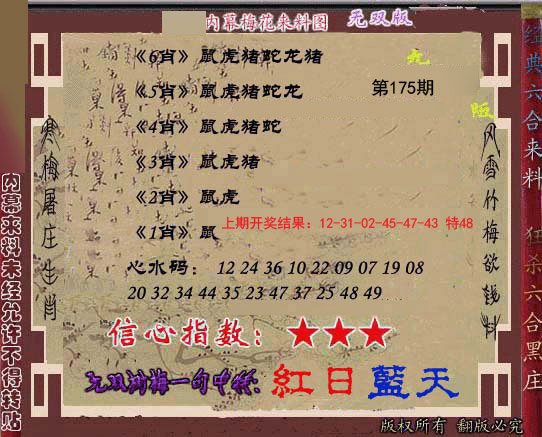 内幕梅花来料图 无双版
《6肖》鼠虎猪蛇龙猪
无
《5肖》鼠虎猪蛇龙
第175期
陋
《4肖》鼠虎猪蛇
《3肖》鼠虎猪
《2肖》鼠虎
上期开奖结果：12-31-02-45-47-43 特48
《1肖》鼠
心水码： 12 24 36 10 22 09 07 19 08
20 32 34 44 35 23 47 37 25 48 49
信心指数：★★★
一句中特：紅日藍天
版权所有 翻版必究
寒梅屠庄生肖
风雪竹梅欲钱料
内幕来料未经允许不得转贴
经典六合来料
狂杀六合黑庄